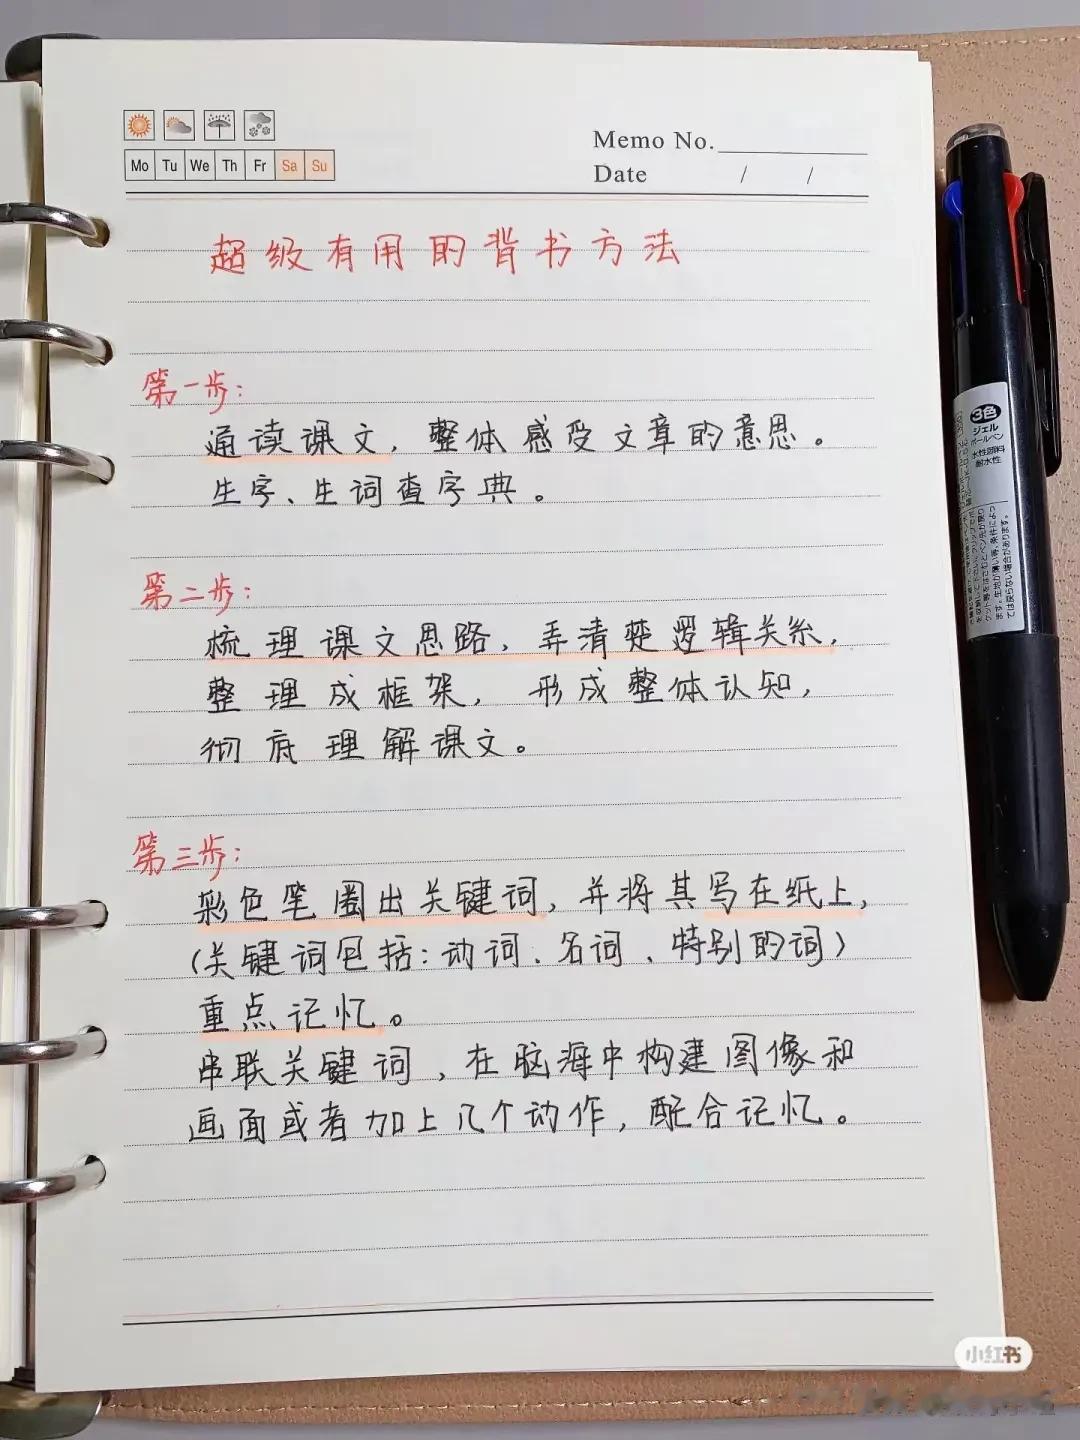 Mo Tu We Th Fr Sa Su
Memo No.
Date / /
超级有用的背书方法
第一步：
通读课文，整体感受文章的意思。
生字、生词查字典。
第二步：
梳理课文思路，弄清楚逻辑关系，
整理成框架，形成整体认知，
彻底理解课文。
第三步：
彩色笔圈出关键词，并将其写在纸上，
（关键词包括：动词、名词、特别的词）
重点记忆。
串联关键词，在脑海中构建图像和
画面或者加上几个动作，配合记忆。
3色
ジェル
ボールペン
水性顔料
耐水性
小红书